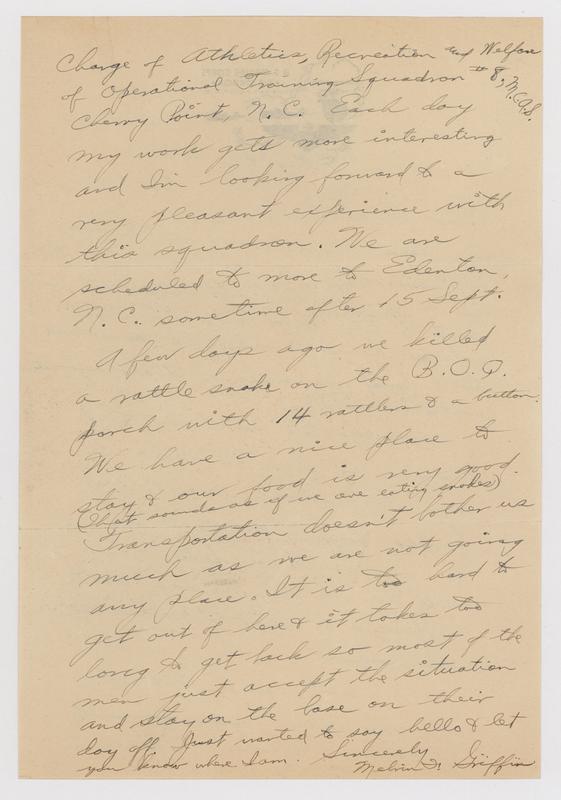 Charge of Athletics, Recreation and Welfare
of Operational Training Squadron #8, M.C.A.S.
Cherry Point N.C. Each day
my work gets more interesting
and I'm looking forward to a
very pleasant experience with
this squadron. We are
scheduled to move to Edenton,
N.C. sometime after 15 Sept.
A few days ago we killed
a rattle snake on the B.O.Q.
porch with 14 rattlers & a button.
We have a nice place to
stay & our food is very good.
(That sounds as if we are eating snakes)
Transportation doesn't bother us
much as we are not going
any place. It is too hard to
get out of here & it takes too
long to get back so most of the
men just accept the situation
and stay on the base on their
day off. Just wanted to say hello & let
you know where I am. Sincerely
Melvin J. Griffin